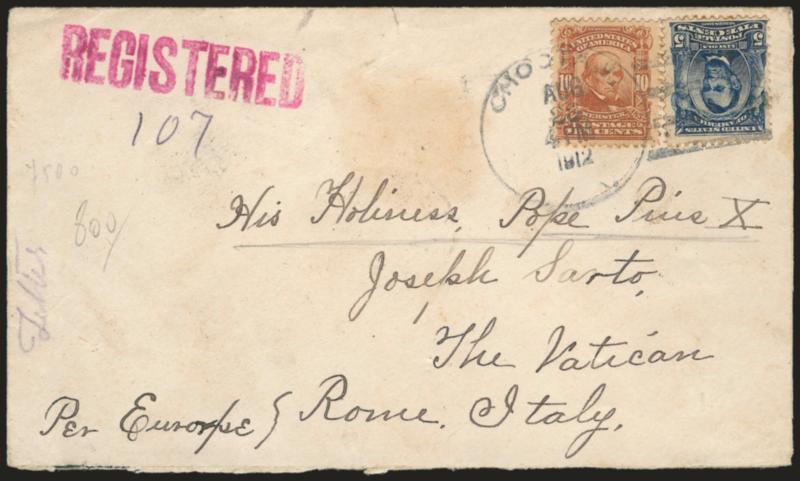 REGISTERED
107
7500
800/
Letter
UNITED STATES
OF AMERICA
10 10
POSTAGE
TEN CENTS
5 5
POSTAGE
FIVE CENTS
UNITED STATES
OF AMERICA
AUG
1912
His Holiness, Pope Pius X
Joseph Sarto,
The Vatican
Rome, Italy,
Per Europe